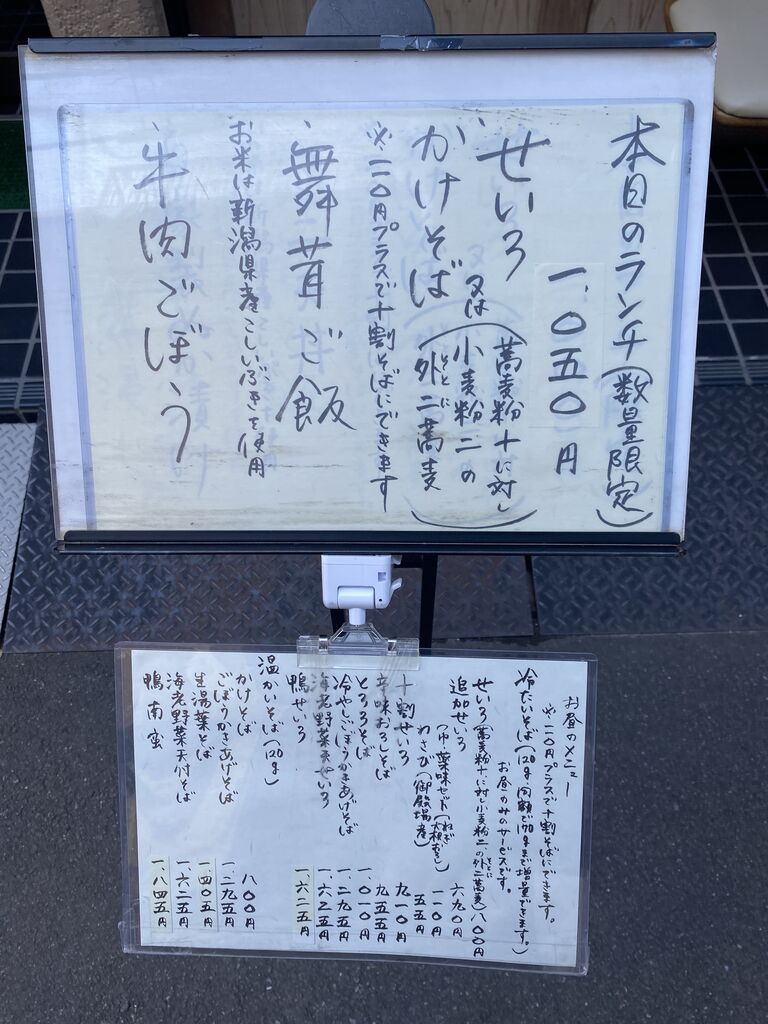 本日のランチ(数量限定)
一、〇五〇円
せいろ
又は
かけそば
(蕎麦粉十に対し
小麦粉二の
外二蕎麦)
そとに
※一一〇円プラスで十割そばにできます
舞茸ご飯
お米は新潟県産こしいぶきを使用
牛肉ごぼう
お昼のメニュー
※一一〇円プラスで十割そばにできます。
冷たいそば(120g・同額で170gまで増量できます。)
お昼のみのサービスです。
せいろ(蕎麦粉十に対し小麦粉二の外二蕎麦) 八〇〇円
そとに
追加せいろ 六九〇円
(つゆ・薬味セット(ねぎ 大根おろし) 一一〇円
わさび(御殿場産) 五五円
十割せいろ 九一〇円
辛味おろしそば 九五五円
とろろそば 一、〇一〇円
冷やしごぼうかきあげそば 一、二九五円
海老野菜天せいろ 一、六二五円
鴨せいろ 一、六二五円
温かいそば(120g)
かけそば 八〇〇円
ごぼうかきあげそば 一、二九五円
生湯葉そば 一、四〇五円
海老野菜天付そば 一、六二五円
鴨南蛮 一、八四五円